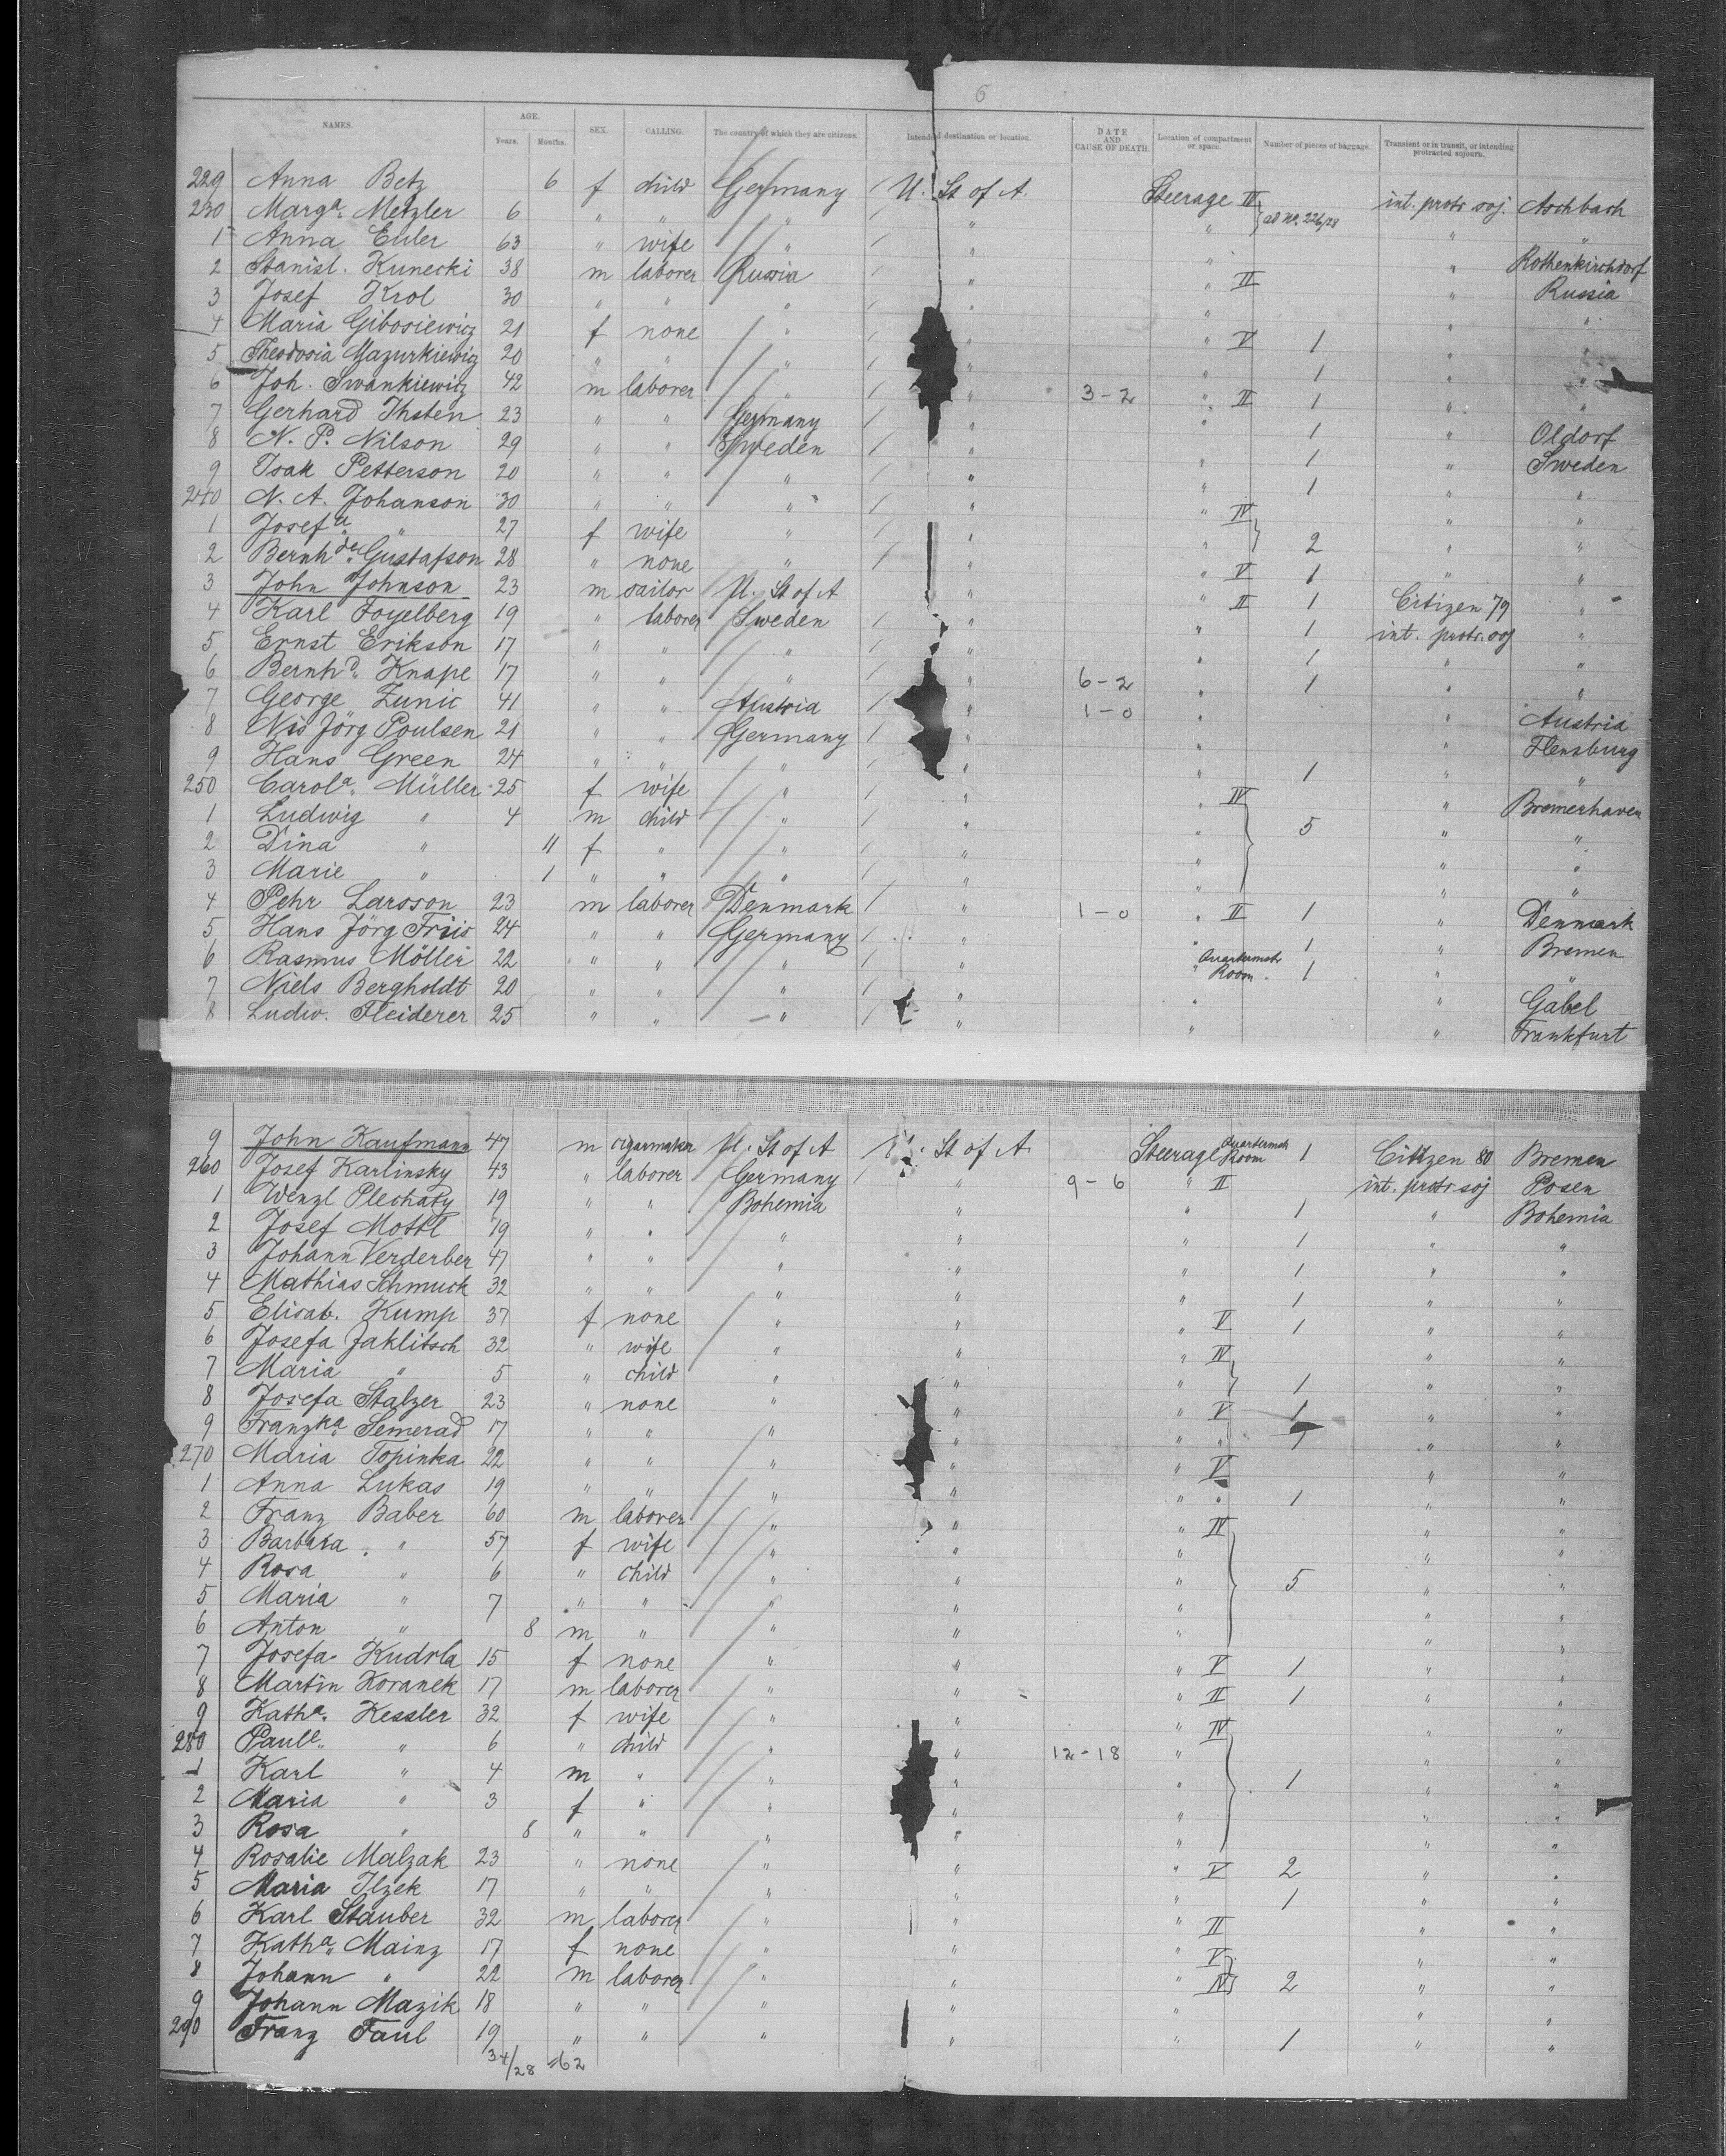 6
NAMES. AGE. Years. Months. SEX. CALLING. The country of which they are citizens. Intended destination or location. DATE AND CAUSE OF DEATH. Location of compartment or space. Number of pieces of baggage. Transient or in transit, or intending protracted sojourn.
229 Anna Betz 6 f child Germany / U. St of A. Steerage IV int. protr soj. Aschbach
230 Marga. Metzler 6 " " " / " " } al no. 226/28 " "
1 Anna Euler 63 " wife " / " " " Rothenkirchdorf
2 Stanisl. Kunecki 38 m laborer Russia / " " II " Russia
3 Josef Krol 30 " " " / " " " "
4 Maria Gibosiewicz 21 f none " / " " V 1 " "
5 Theodosia Mazurkiewicz 20 " " " / " " 1 " "
6 Joh. Swankiewicz 42 m laborer " / " 3-2 " II 1 " "
7 Gerhard Ihsten 23 " " Germany / " " 1 " Oldorf
8 N. P. Nilson 29 " " Sweden / " " 1 " Sweden
9 Isak Petterson 20 " " " / " " 1 " "
240 N. A. Johanson 30 " " " / " " IV " "
1 Josefa " 27 f wife " / " " } 2 " "
2 Bernhde. Gustafson 28 " none " / " " V 1 " "
3 John Johnson 23 m sailor U. St of A " " II 1 Citizen 79 "
4 Karl Foyelberg 19 " laborer Sweden / " " 1 int. protr. soj "
5 Ernst Erikson 17 " " " / " " 1 " "
6 Bernhd. Knape 17 " " " / " 6-2 " 1 " "
7 George Zunic 41 " " Austria / " 1-0 " " Austria
8 Nis Jörg Poulsen 21 " " Germany / " " " Flensburg
9 Hans Green 24 " " " / " " 1 " "
250 Carola. Müller 25 f wife " / " " IV " Bremerhaven
1 Ludwig " 4 m child " / " " } 5 " "
2 Dina " 11 f " " / " " " "
3 Marie " 1 " " " / " " " "
4 Pehr Larsson 23 m laborer Denmark / " 1-0 " II 1 " Denmark
5 Hans Jörg Friis 24 " " Germany / " " 1 " Bremen
6 Rasmus Möller 22 " " " / " " Quartermstr Room. 1 " "
7 Niels Bergholdt 20 " " " / " " " Gabel
8 Ludw. Fleiderer 25 " " " / " " " Frankfurt
9 John Kaufmann 47 m cigarmaker U. St of A U. St of A Steerage Quartermstr Room 1 Citizen 80 Bremen
260 Josef Karlinsky 43 " laborer Germany / " 9-6 " II int. protr soj Posen
1 Wenzl Plechaty 19 " " Bohemia " " 1 " Bohemia
2 Josef Mottl 19 " " " " " 1 " "
3 Johann Verderber 47 " " " " " 1 " "
4 Mathias Schmuck 32 " " " " " 1 " "
5 Elisab. Kump 37 f none " " " V 1 " "
6 Josefa Jaklitsch 32 " wife " " " IV " "
7 Maria " 5 " child " " " } 1 " "
8 Josefa Stalzer 23 " none " " " V 1 " "
9 Franzka. Semerad 17 " " " " " " 1 " "
270 Maria Topinka 22 " " " " " V " "
1 Anna Lukas 19 " " " " " " 1 " "
2 Franz Baber 60 m laborer " " " IV " "
3 Barbara " 57 f wife " " " " "
4 Rosa " 6 " child " " " } 5 " "
5 Maria " 7 " " " " " " "
6 Anton " 8 m " " " " " "
7 Josefa Kudrla 15 f none " " " V 1 " "
8 Martin Koranek 17 m laborer " " " II 1 " "
9 Katha. Kessler 32 f wife " " " IV " "
280 Paule. " 6 " child " " 12-18 " " "
1 Karl " 4 m " " " " } 1 " "
2 Maria " 3 f " " " " " "
3 Rosa " 8 " " " " " " "
4 Rosalie Malzak 23 " none " " " V 2 " "
5 Maria Ilzek 17 " " " " " 1 " "
6 Karl Stauber 32 m laborer " " " II " "
7 Katha. Mainz 17 f none " " " V " "
8 Johann " 22 m laborer " " " IV } 2 " "
9 Johann Mazik 18 " " " " " " "
290 Franz Faul 19 " " " " " 1 " "
34/28 =62